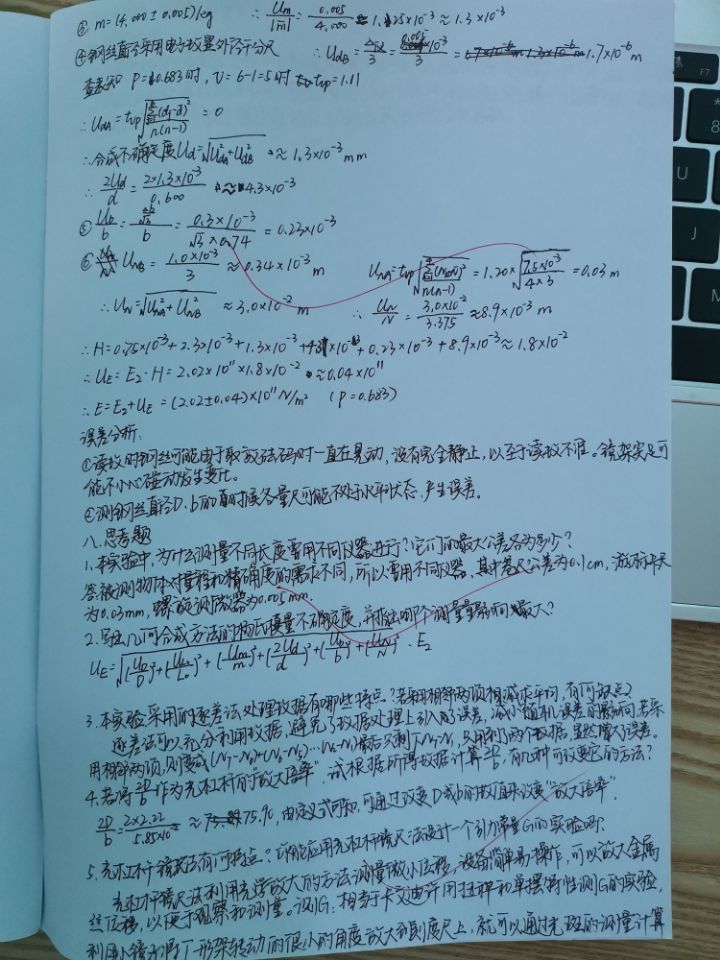 ③ m=(4.000±0.005)kg ∴ Um/|m| = 0.005/4.000 ≈ 1.25×10⁻³ ≈ 1.3×10⁻³
④ 钢丝直径采用电子数显外径千分尺 ∴ UdB = /3 = ×10⁻³/3 = 1.7×10⁻⁶ m
查表知 P=0.683时, ν=6-1=5时 tvp=1.11
∴ UdA = tvp√(Σ(di-d̄)²/n(n-1)) = 0
∴ 合成不确定度Ud=√(U²dA+U²dB) ≈ 1.3×10⁻³ mm
∴ 2Ud/d = 2×1.3×10⁻³/0.600 ≈ 4.3×10⁻³
⑤ Ub/b = /b = 0.3×10⁻³/√3×0.74 = 0.23×10⁻³
⑥ UNB = 1.0×10⁻³/3 ≈ 0.34×10⁻³ m UNA = tvp√(/n(n-1)) = 1.20×√(7.5×10⁻³/4×3) = 0.03 m
∴ UN=√(U²NA+U²NB) ≈ 3.0×10⁻² m ∴ UN/N = 3.0×10⁻²/3.375 ≈ 8.9×10⁻³ m
∴ H=0.75×10⁻³+2.3×10⁻³+1.3×10⁻³+4.3×10⁻³+0.23×10⁻³+8.9×10⁻³≈1.8×10⁻²
∴ UE=E2·H=2.02×10¹¹×1.8×10⁻²≈0.04×10¹¹
∴ E=E2+UE=(2.02±0.04)×10¹¹N/m² (P=0.683)
误差分析:
①读数时钢丝可能由于取放砝码时一直在晃动,没有完全静止,以至于读数不准。镜架尖足可
能不小心碰动发生变化。
②测钢丝直径D、b的时候各量尺可能不处于水平状态,产生误差。
八.思考题
1.本实验中,为什么测量不同长度要用不同仪器进行?它们的最大公差各为多少?
答被测物体对量程和精确度的需求不同,所以要用不同仪器,其中卷尺公差为0.1cm,游标卡尺
为0.03mm,螺旋测微器为0.005mm.
2.写出几何合成方法的杨氏模量不确定度,并指出哪个测量量影响最大?
UE=√((UD/D)²+(UL0/L0)²+(Um/m)²+(2Ud/d)²+(Ub/b)²+(UN/N)²)·E2
3.本实验采用的逐差法处理数据有哪些特点?若采用相邻两项相减求平均,有何缺点?
逐差法可以充分利用数据,避免了数据处理上引入的误差,减小随机误差的影响。若采
用相邻两项,则变成(N7-N6)+(N6-N5)…N2-N1最后只剩下N7-N1,只用到了两个数据,显然增大误差。
4.若将2D/b作为光杠杆的"放大倍率",试根据所得数据计算2D/b,有几种可改变它的方法?
2D/b = 2×2.22/5.85×10⁻² ≈ 75.90,由定义式可知,可通过改变D或b的数值来改变"放大倍率".
5.光杠杆镜尺法有何特点?你能应用光杠杆镜尺法设计一个引力常量G的实验吗?
光杠杆镜尺法利用光学放大的方法测量微小位移,设备简单易操作,可以放大金属
丝位移,以便于观察和测量。测G:相当于卡文迪许用扭秤和单摆特性测G的实验,
利用小镜把T形架转动的很小的角度放大到刻度尺上,就可以通过光斑的测量计算